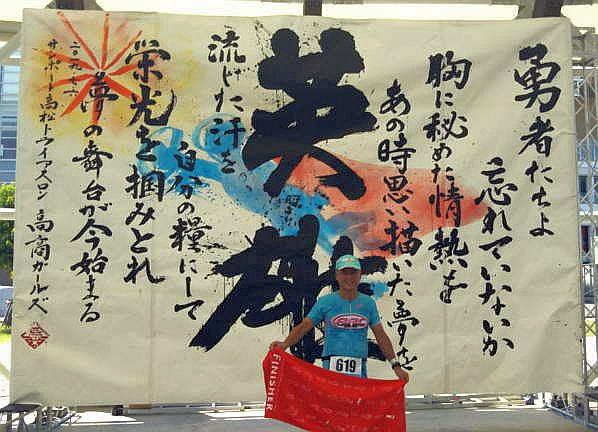 勇者たちよ
忘れていないか
胸に秘めた情熱を
あの時思い描いた夢を
英雄
流した汗を
自分の糧にして
栄光を掴みとれ
夢の舞台が今始まる
二〇一九・七・
サンポート高松トライアスロン 高商ガールズ
619
FINISHER